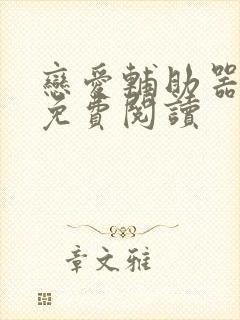 戀愛輔助器
免費閱讀
章文雅